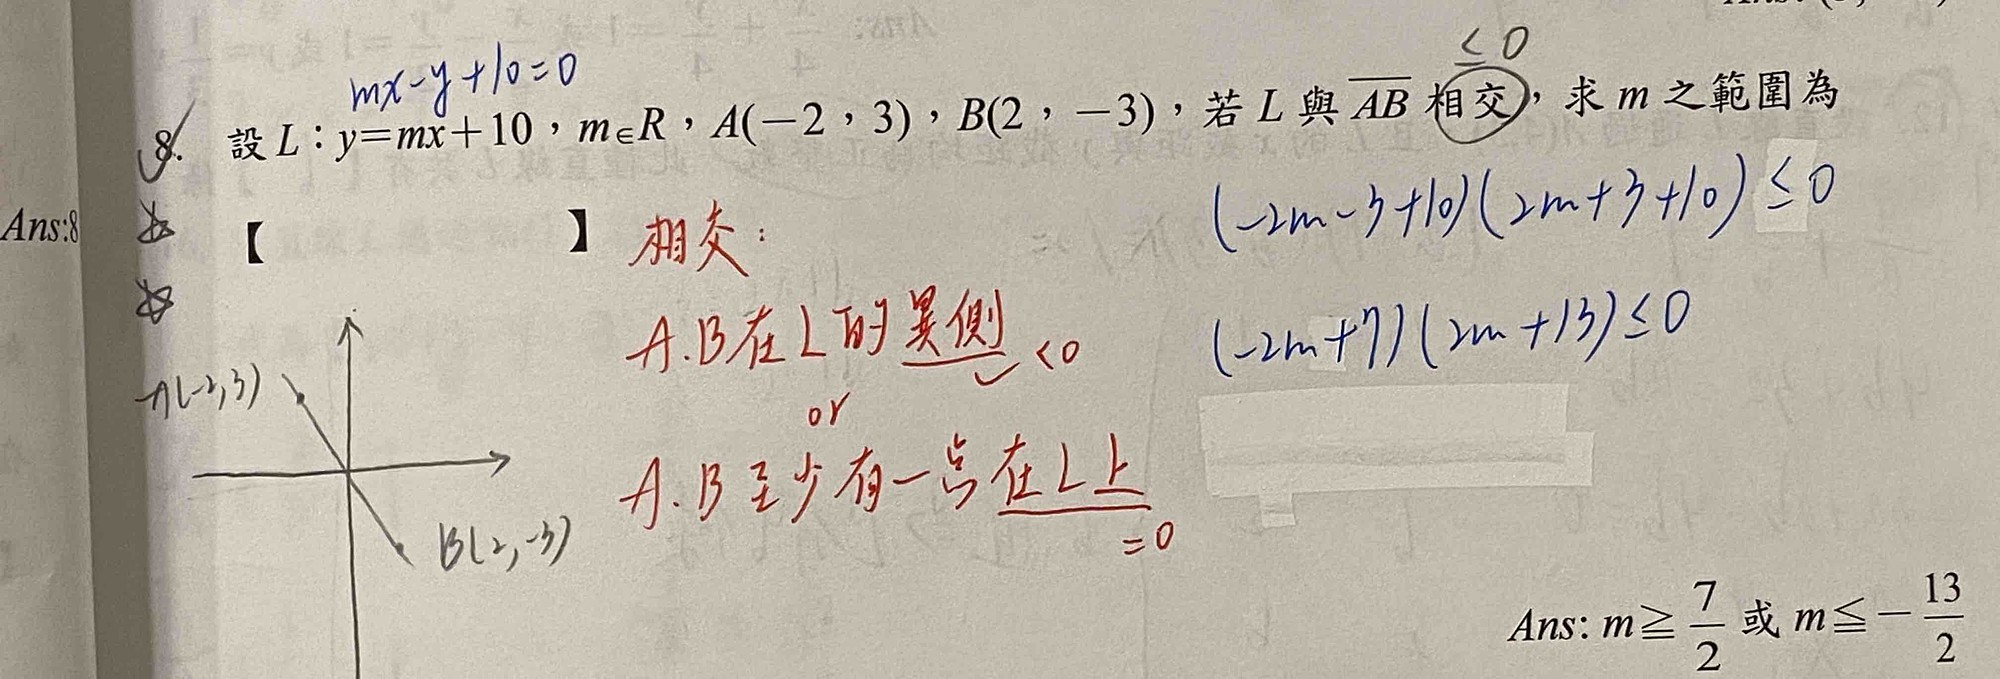 mx-y+10=0
≤0
8. 設L：y=mx+10，m∈R，A(-2，3)，B(2，-3)，若L與AB相交，求m之範圍為
【 】
Ans:8
相交：
(-2m-3+10)(2m+3+10)≤0
A.B在L的異側 <0
(-2m+7)(2m+13)≤0
or
A(-2,3)
A.B至少有一点在L上
=0
B(2,-3)
Ans: m≧7/2 或 m≦-13/2